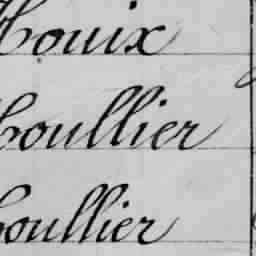 Houix
Houllier
Houllier